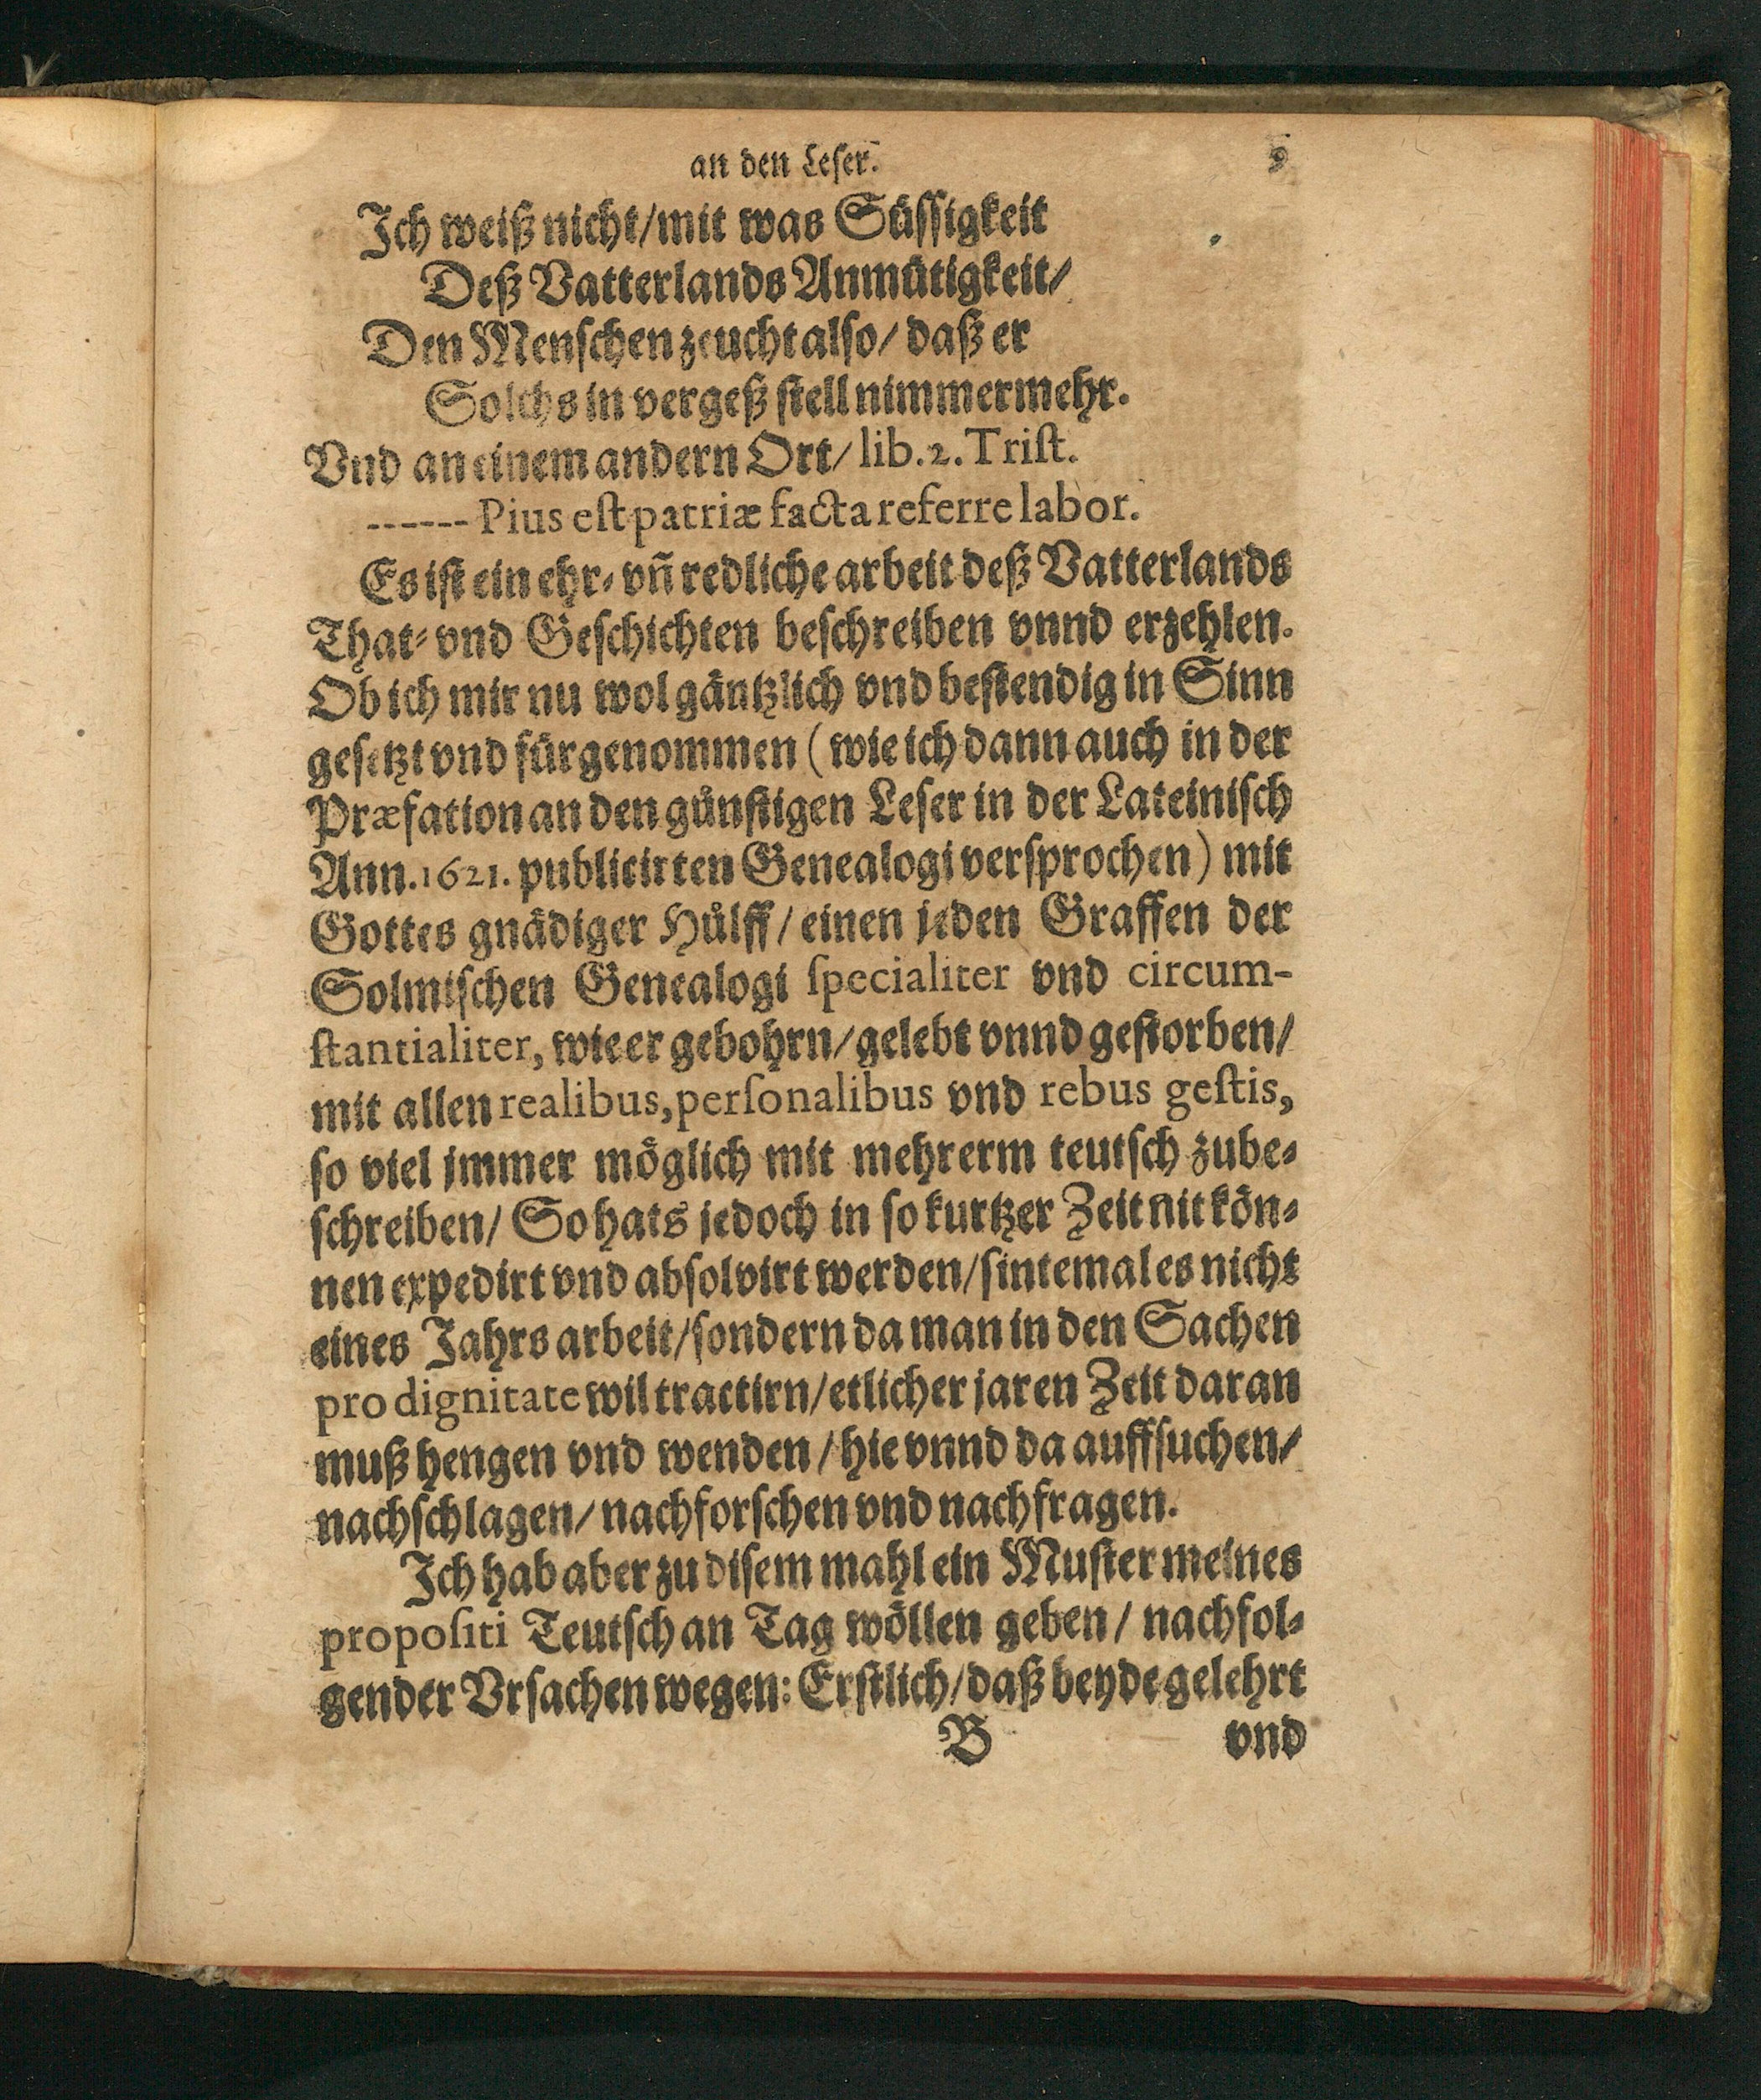 an den Leſer. 9
Ich weiß nicht/mit was Süſſigkeit
Deß Vatterlands Anmütigkeit/
Den Menſchen zeucht alſo/ daß er
Solchs in vergeß ſtell nimmermehr.
Vnd an einem andern Ort/ lib.2. Triſt.
------ Pius eſt patriæ facta referre labor.
Es iſt ein ehr⸗ vñ redliche arbeit deß Vatterlands
That⸗ vnd Geſchichten beſchreiben vnnd erzehlen.
Ob ich mir nu wol gäntzlich vnd beſtendig in Sinn
geſetzt vnd fürgenommen (wie ich dann auch in der
Præfation an den günſtigen Leſer in der Lateiniſch
Ann. 1621. publicirten Genealogi verſprochen) mit
Gottes gnädiger Hülff/ einen jeden Graffen der
Solmiſchen Genealogi ſpecialiter vnd circum-
ſtantialiter, wie er gebohrn/ gelebt vnnd geſtorben/
mit allen realibus, perſonalibus vnd rebus geſtis,
ſo viel jmmer möglich mit mehrerm teutſch zube⸗
ſchreiben/ So hats jedoch in ſo kurtzer Zeit nit kön⸗
nen expedirt vnd abſolvirt werden/ ſintemal es nicht
eines Jahrs arbeit/ ſondern da man in den Sachen
pro dignitate wil tractirn/ etlicher jaren Zeit daran
muß hengen vnd wenden/ hie vnnd da auffſuchen/
nachſchlagen/ nachforſchen vnd nachfragen.
Ich hab aber zu diſem mahl ein Muſter meines
propoſiti Teutſch an Tag wöllen geben/ nachfol⸗
gender Vrſachen wegen: Erſtlich/ daß beyde gelehrt
B vnd